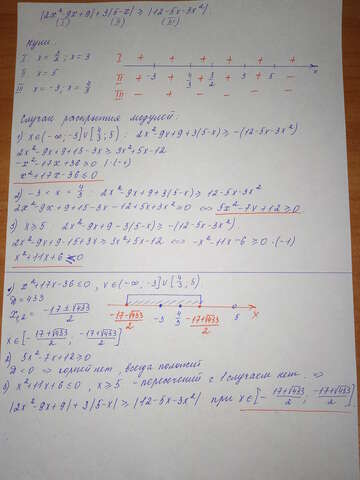 |2x²-9x+9|+3|5-x| ≥ |12-5x-3x²|
(I) (II) (III)
Нули:
I x = 3/2; x = 3 I + + + - + +
II x = 5 II + -3 + 4/3 + 3/2 + 3 + 5 - x
III x = -3, x = 4/3 III - + - - - -
Случаи раскрытия модулей:
1) x∈(-∞;-3]∪[4/3; 5): 2x²-9x+9+3(5-x) ≥ -(12-5x-3x²)
2x²-9x+9+15-3x ≥ 3x²+5x-12
-x²-17x+36 ≥ 0 | (-1)
x²+17x-36 ≤ 0
2) -3 < x < 4/3: 2x²-9x+9+3(5-x) ≥ 12-5x-3x²
2x²-9x+9+15-3x-12+5x+3x² ≥ 0 ⇔ 5x²-7x+12 ≥ 0
3) x ≥ 5 2x²-9x+9-3(5-x) ≥ -(12-5x-3x²)
2x²-9x+9-15+3x ≥ 3x²+5x-12 ⇔ -x²-11x-6 ≥ 0 · (-1)
x²+11x+6 ≤ 0
1) x²+17x-36 ≤ 0, x∈(-∞;-3]∪[4/3; 5).
D = 433
x₁,₂ = (-17±√433)/2 (-17-√433)/2 -3 4/3 (-17+√433)/2 5 x
x∈[-(17+√433)/2; (-17+√433)/2]
2) 5x²-7x+12 ≥ 0
D < 0 ⇒ корней нет, всегда положит
3) x²+11x+6 ≤ 0, x ≥ 5 - пересечений с случаем нет. ⇒
|2x²-9x+9|+3|5-x| ≥ |12-5x-3x²| при x∈[-(17+√433)/2; (-17+√433)/2]